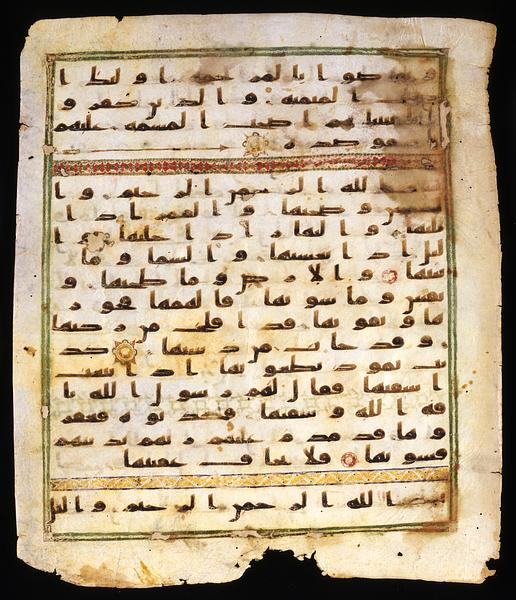 و تواصوا بالمرحمة أولئك ا
صحب الميمنة والذين كفرو
ا بايتنا هم اصحب المشمة عليهم
نار موصدة
بسم الله الرحمن الرحيم وا
لشمس وضحيها والقمر اذا
تليها والنهار اذا جليها وا
ليل اذا يغشيها والسما وما
بنيها والارض وما طحيها و
نفس وما سويها فالهمها فجور
ها وتقويها قد افلح من زكيها
وقد خاب من دسيها كذ
بت ثمود بطغويها اذ انبعث
اشقيها فقال لهم رسول الله نا
قة الله وسقيها فكذبوه فعقر
وها فدمدم عليهم ربهم بذنبهم
فسويها فلا يخاف عقبيها
بسم الله الرحمن الرحيم واليل